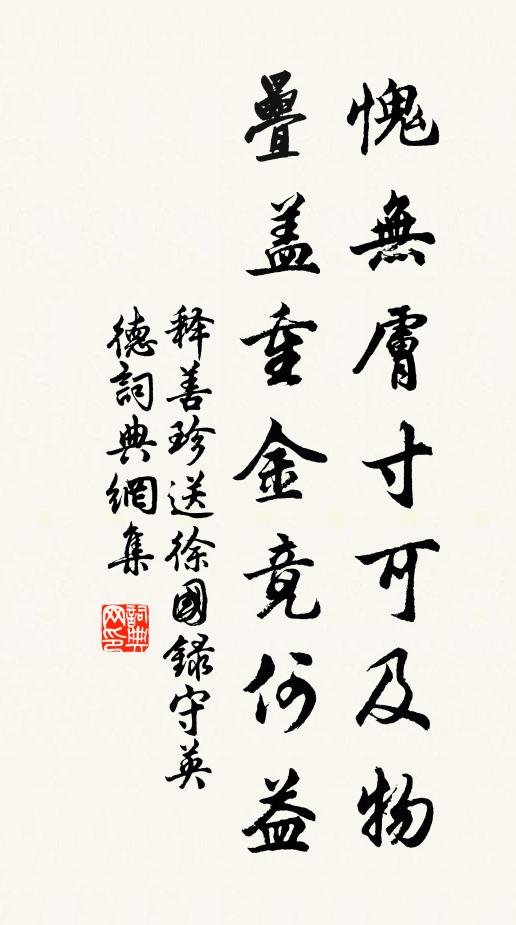 愧無膚寸可及物
疊盖重金竟何益
释善珍送徐國録守英
德詞典網集
詞典网印